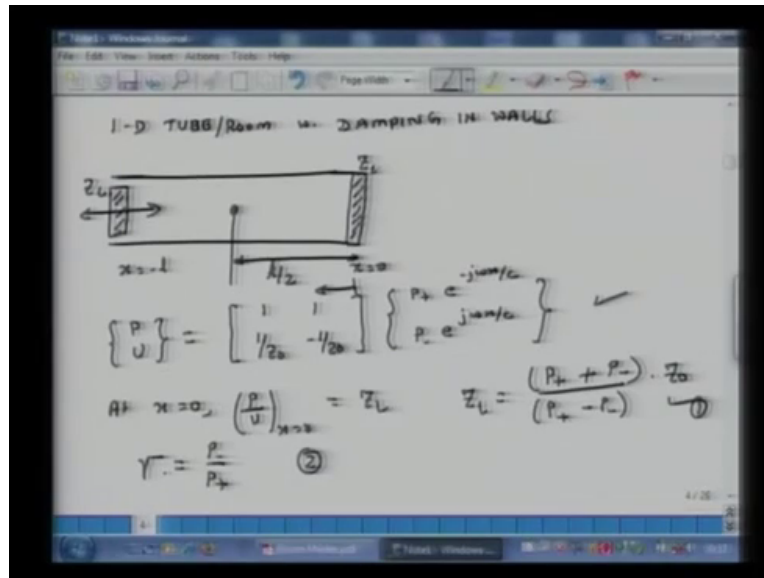 Note1 - Windows Journal
File Edit View Insert Actions Tools Help
Page Width
1-D TUBE/Room w. DAMPING IN WALLS
Z_L
Z_L
x=-l
l/2
x=0
{P U} = [1 1 1/Z0 -1/Z0] {P+ e^{-jωx/c} P- e^{jωx/c}}
At x=0, (P/U)_{x=0} = Z_L Z_L = (P+ + P-)/(P+ - P-) . Z0 ①
r = P-/P+ ②
4/28
Note1 - Windows...